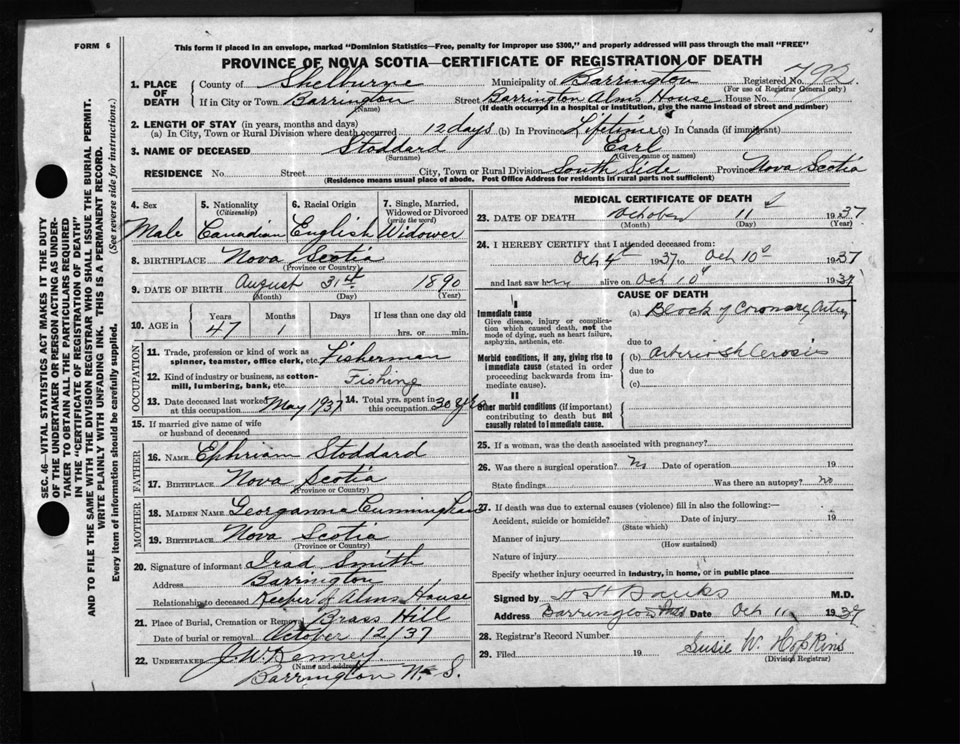 FORM 6
This form if placed in an envelope, marked "Dominion Statistics—Free, penalty for improper use $300," and properly addressed will pass through the mail "FREE"
PROVINCE OF NOVA SCOTIA—CERTIFICATE OF REGISTRATION OF DEATH
1. PLACE OF DEATH
County of Shelburne Municipality of Barrington Registered No. 792
(For use of Registrar General only)
If in City or Town Barrington Street Barrington Alms House House No.
(Name) (If death occurred in a hospital or institution, give the name instead of street and number)
2. LENGTH OF STAY (in years, months and days)
(a) In City, Town or Rural Division where death occurred 12 days (b) In Province Lifetime (c) In Canada (if immigrant)
3. NAME OF DECEASED Stoddard Earl
(Surname) (Given name or names)
RESIDENCE No. Street City, Town or Rural Division South Side Province Nova Scotia
(Residence means usual place of abode. Post Office Address for residents in rural parts not sufficient)
4. Sex 5. Nationality (Citizenship) 6. Racial Origin 7. Single, Married, Widowed or Divorced (write the word)
Male Canadian English Widower
8. BIRTHPLACE Nova Scotia
(Province or Country)
9. DATE OF BIRTH August 31st 1890
(Month) (Day) (Year)
10. AGE in Years Months Days If less than one day old
47 1 hrs. or min.
OCCUPATION
11. Trade, profession or kind of work as spinner, teamster, office clerk, etc. Fisherman
12. Kind of industry or business, as cotton-mill, lumbering, bank, etc. Fishing
13. Date deceased last worked at this occupation May 1937 14. Total yrs. spent in this occupation 30 yrs
15. If married give name of wife or husband of deceased
FATHER
16. NAME Ephriam Stoddard
17. BIRTHPLACE Nova Scotia
(Province or Country)
MOTHER
18. MAIDEN NAME Georganna Cunningham
19. BIRTHPLACE Nova Scotia
(Province or Country)
20. Signature of informant Irad Smith
Address Barrington
Relationship to deceased Keeper of Alms House
21. Place of Burial, Cremation or Removal Brass Hill
Date of burial or removal October 12/37
22. UNDERTAKER J.W. Kenney
(Name and address)
Barrington N.S.
MEDICAL CERTIFICATE OF DEATH
23. DATE OF DEATH October 11 1937
(Month) (Day) (Year)
24. I HEREBY CERTIFY that I attended deceased from:
Oct 4th 1937 to Oct 10th 1937
and last saw h alive on Oct 10th 1937
CAUSE OF DEATH
I
Immediate cause
Give disease, injury or complication which caused death, not the mode of dying, such as heart failure, asphyxia, asthenia, etc.
(a) Block of Coronary Artery
due to
Morbid conditions, if any, giving rise to immediate cause (stated in order proceeding backwards from immediate cause).
(b) Arterio sklerosis
due to
(c)
II
Other morbid conditions (if important) contributing to death but not causally related to immediate cause.
25. If a woman, was the death associated with pregnancy?
26. Was there a surgical operation? No Date of operation 19
State findings Was there an autopsy? No
27. If death was due to external causes (violence) fill in also the following:—
Accident, suicide or homicide? Date of injury 19
(State which)
Manner of injury
(How sustained)
Nature of injury
Specify whether injury occurred in industry, in home, or in public place
Signed by H H Banks M.D.
Address Barrington Date Oct 11 1937
28. Registrar's Record Number
29. Filed 19 Susie W. Hopkins
(Division Registrar)
SEC. 46—VITAL STATISTICS ACT MAKES IT THE DUTY OF THE UNDERTAKER OR PERSON ACTING AS UNDERTAKER TO OBTAIN ALL THE PARTICULARS REQUIRED IN THE "CERTIFICATE OF REGISTRATION OF DEATH"
AND TO FILE THE SAME WITH THE DIVISION REGISTRAR WHO SHALL ISSUE THE BURIAL PERMIT.
WRITE PLAINLY WITH UNFADING INK. THIS IS A PERMANENT RECORD.
Every item of information should be carefully supplied. (See reverse side for instructions.)